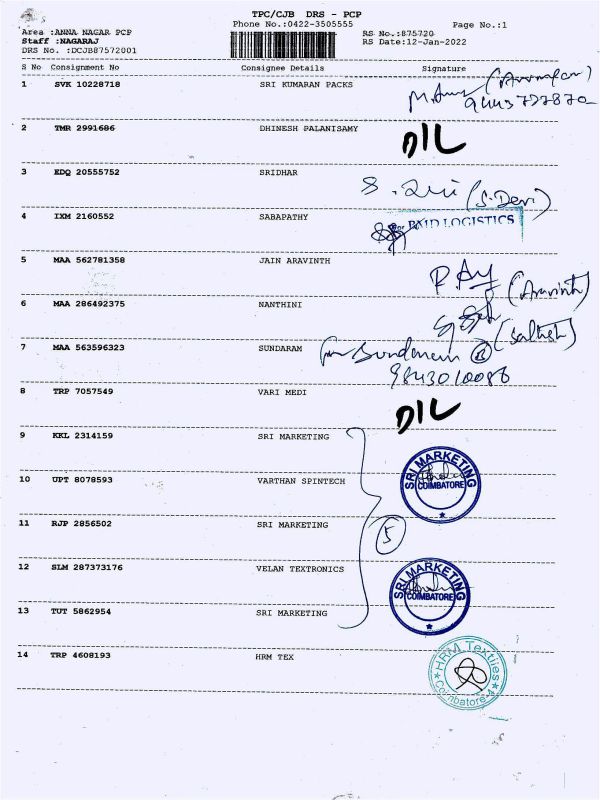 TPC/CJB DRS - PCP
Phone No.:0422-3505555
Page No.:1
Area :ANNA NAGAR PCP
RS No.:875720
Staff :NAGARAJ
RS Date:12-Jan-2022
DRS No. :DCJB87572001
S No Consignment No Consignee Details Signature
1 SVK 10228718 SRI KUMARAN PACKS
2 TMR 2991686 DHINESH PALANISAMY D/L
3 EDQ 20555752 SRIDHAR
(S.Devi)
4 IXM 2160552 SABAPATHY
LOGISTICS
5 MAA 562781358 JAIN ARAVINTH
(Aravinth)
6 MAA 286492375 NANTHINI
7 MAA 563596323 SUNDARAM
9843010086
8 TRP 7057549 VARI MEDI D/L
9 KKL 2314159 SRI MARKETING
SRI MARKETING
COIMBATORE
10 UPT 8078593 VARTHAN SPINTECH
11 RJP 2856502 SRI MARKETING
5
12 SLM 287373176 VELAN TEXTRONICS
SRI MARKETING
COIMBATORE
13 TUT 5862954 SRI MARKETING
14 TRP 4608193 HRM TEX
HRM Textiles
Coimbatore